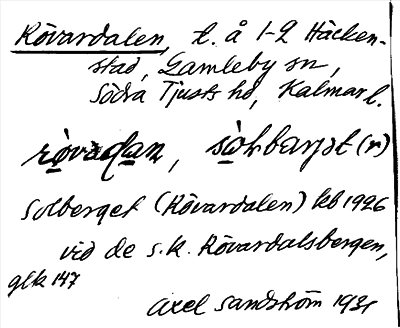 Rövardalen, t. å 1-2 Häcken-
stad, Gamleby sn,
Södra Tjusts hd, Kalmar l.
rövadan, sòlbarjet (n)
Solberget (Rövardalen) kb 1926
vid de s.k. Rövardalsbergen,
glk 147
Axel Sandström 1931